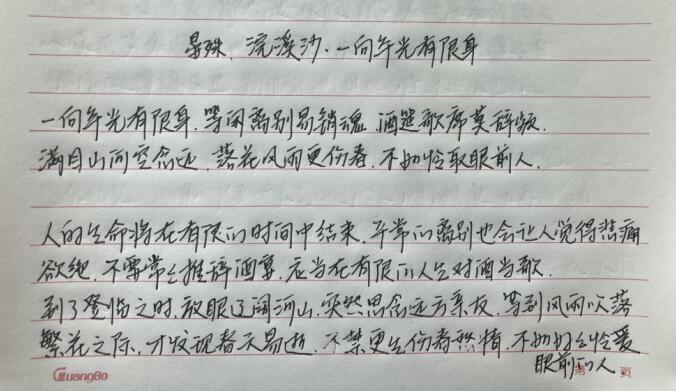 晏殊.浣溪沙.一向年光有限身
一向年光有限身.等闲离别易销魂.酒筵歌席莫辞频.
满目山河空念远.落花风雨更伤春.不如怜取眼前人.
人的生命将在有限的时间中结束.平常的离别也会让人觉得悲痛
欲绝.不要常常推辞酒宴.应当在有限的人生对酒当歌.
到了登临之时.放眼辽阔河山.突然思念远方亲友.等到风雨吹落
繁花之际.才发现春天易逝.不禁更生伤春愁情.不如好好怜爱
眼前的人
GuangBo
第 页